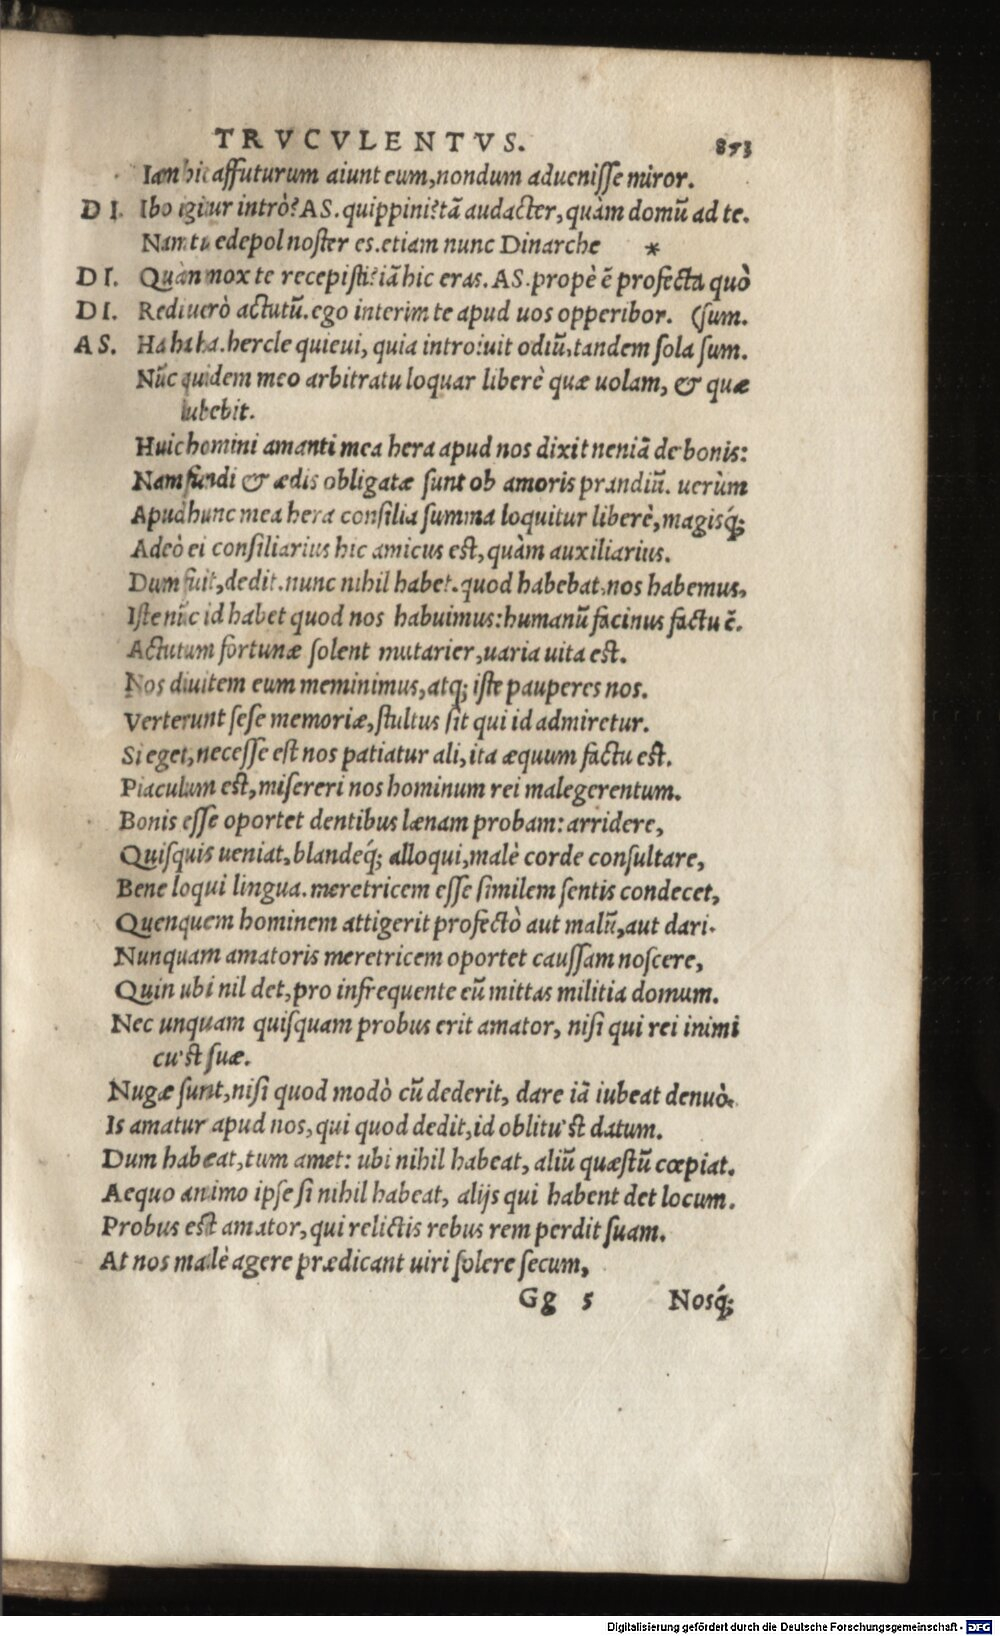 TRVCVLENTVS. 853
Iam hic affuturum aiunt eum, nondum aduenisse miror.
DI. Ibo igitur intrò? AS. quippini? tã audacter, quàm domũ ad te.
Nam tu edepol noster es. etiam nunc Dinarche *
DI. Quàm mox te recepisti? iã hic eras. AS. propè ẽ profecta quò
DI. Redi uerò actutũ. ego interim te apud uos opperibor. (sum.
AS. Ha ha ha. hercle quieui, quia introiuit odiũ, tandem sola sum.
Nũc quidem meo arbitratu loquar liberè quæ uolam, & quæ
lubebit.
Huic homini amanti mea hera apud nos dixit neniã de bonis:
Nam fundi & ædis obligatæ sunt ob amoris prandiũ. uerùm
Apud hunc mea hera consilia summa loquitur liberè, magisq́;
Adeò ei consiliarius hic amicus est, quàm auxiliarius.
Dum fuit, dedit. nunc nihil habet. quod habebat, nos habemus,
Iste nũc id habet quod nos habuimus: humanũ facinus factu ẽ.
Actutum fortunæ solent mutarier, uaria uita est.
Nos diuitem eum meminimus, atq; iste pauperes nos.
Verterunt sese memoriæ, stultus sit qui id admiretur.
Si eget, necesse est nos patiatur ali, ita æquum factu est.
Piaculum est, misereri nos hominum rei malegerentum.
Bonis esse oportet dentibus lænam probam: arridere,
Quisquis ueniat, blandeq́; alloqui, malè corde consultare,
Bene loqui lingua. meretricem esse similem sentis condecet,
Quenquem hominem attigerit profectò aut malũ, aut dari.
Nunquam amatoris meretricem oportet caussam noscere,
Quin ubi nil det, pro infrequente eũ mittas militia domum.
Nec unquam quisquam probus erit amator, nisi qui rei inimi
cu'st suæ.
Nugæ sunt, nisi quod modò cũ dederit, dare iã iubeat denuò.
Is amatur apud nos, qui quod dedit, id oblitu'st datum.
Dum habeat, tum amet: ubi nihil habeat, aliũ quæstũ cœpiat.
Aequo animo ipse si nihil habeat, alijs qui habent det locum.
Probus est amator, qui relictis rebus rem perdit suam.
At nos malè agere prædicant uiri solere secum,
Gg 5 Nosq́;
Digitalisierung gefördert durch die Deutsche Forschungsgemeinschaft - DFG